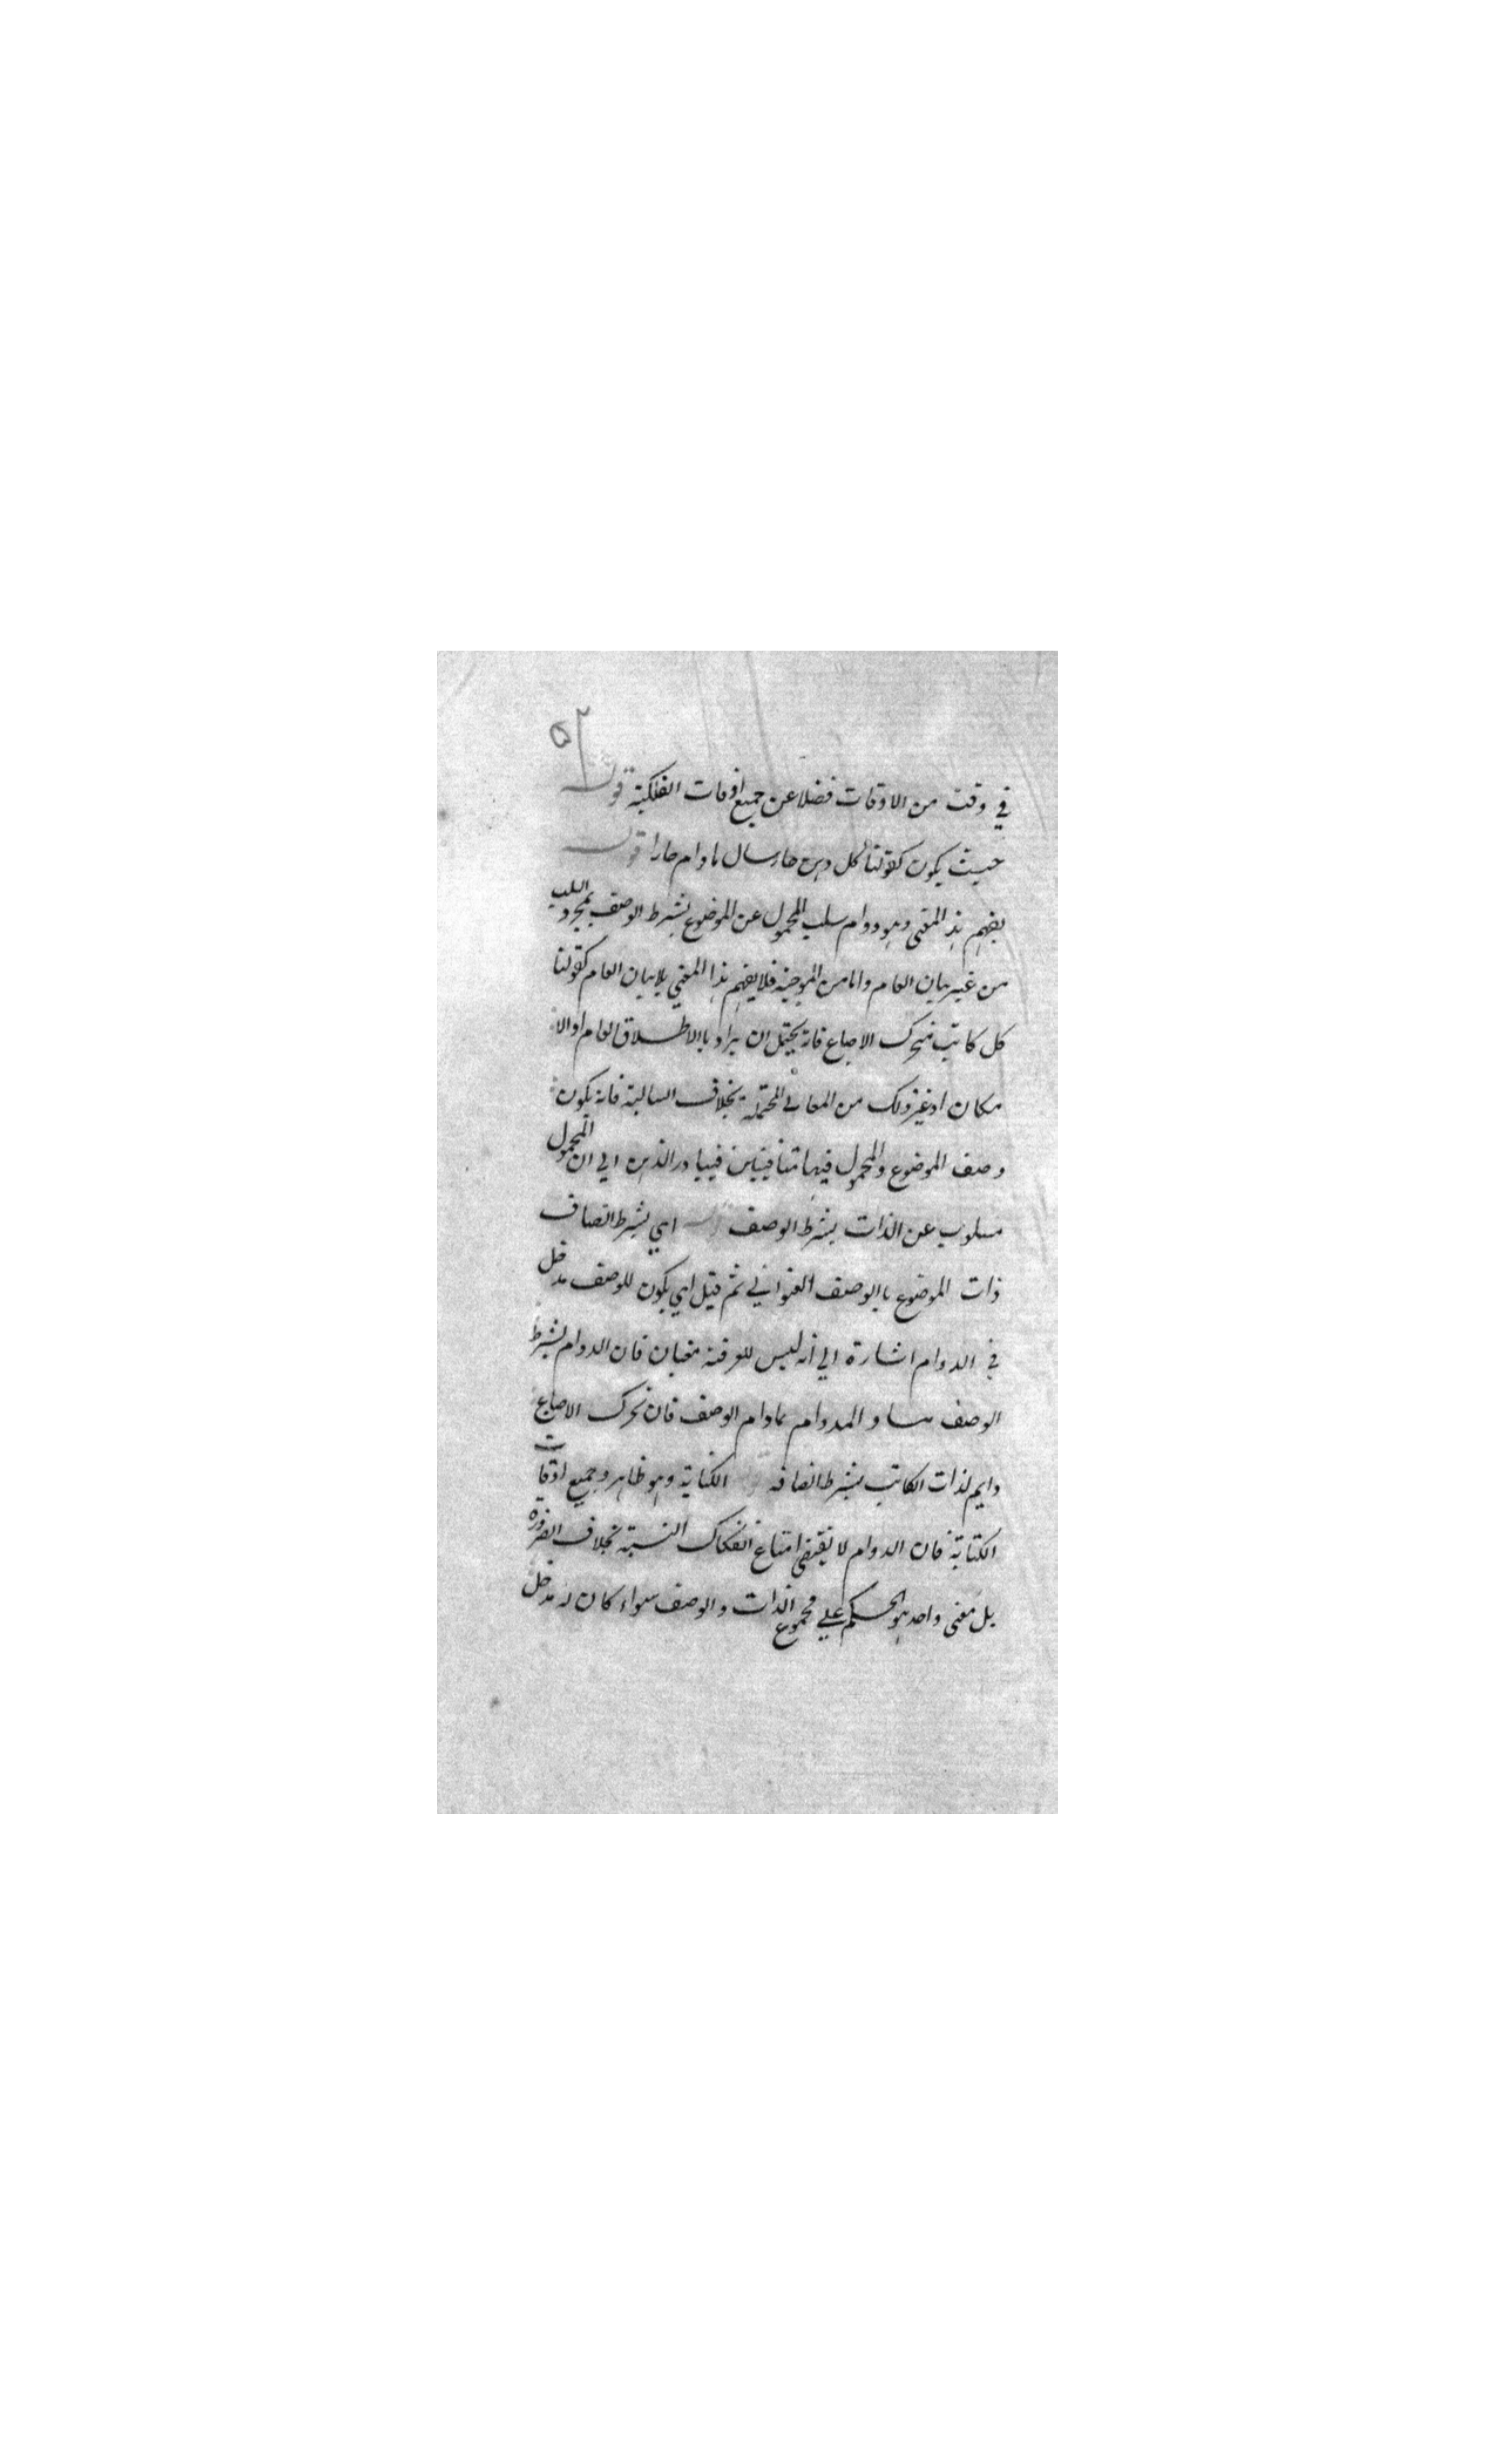 ٥٢
في وقت من الاوقات فضلا عن جميع اوقات الفلكية قوله
حيث يكون كقولنا كل دهن حار سال مادام حارا قوله
يفهم هذا المعنى وهو دوام سلب المحمول عن الموضوع بشرط الوصف بمجرد السلب
من غير بيان العام واما من الموجبة فلا يفهم هذا المعنى بلا بيان العام كقولنا
كل كاتب متحرك الاصابع فانه يحتمل ان يراد بالاطلاق العام او الا
مكان او غير ذلك من المعاني المحتملة بخلاف السالبة فانه يكون
وصف الموضوع والمحمول فيها متنافيين فيتبادر الذهن الي ان المحمول
مسلوب عن الذات بشرط الوصف اي بشرط اتصاف
ذات الموضوع بالوصف العنواني ثم قيل اي يكون للوصف مدخل
في الدوام اشارة الي أنه ليس للعرفية معنيان فان الدوام بشرط
الوصف مساو الدوام مادام الوصف فان تحرك الاصابع
دايم لذات الكاتب بشرط اتصافه الكتابة وهو ظاهر وجميع اوقات
الكتابة فان الدوام لا يقتضي امتناع انفكاك النسبة بخلاف الضرورة
بل معنى واحد هو الحكم علي مجموع الذات والوصف سواء كان له مدخل